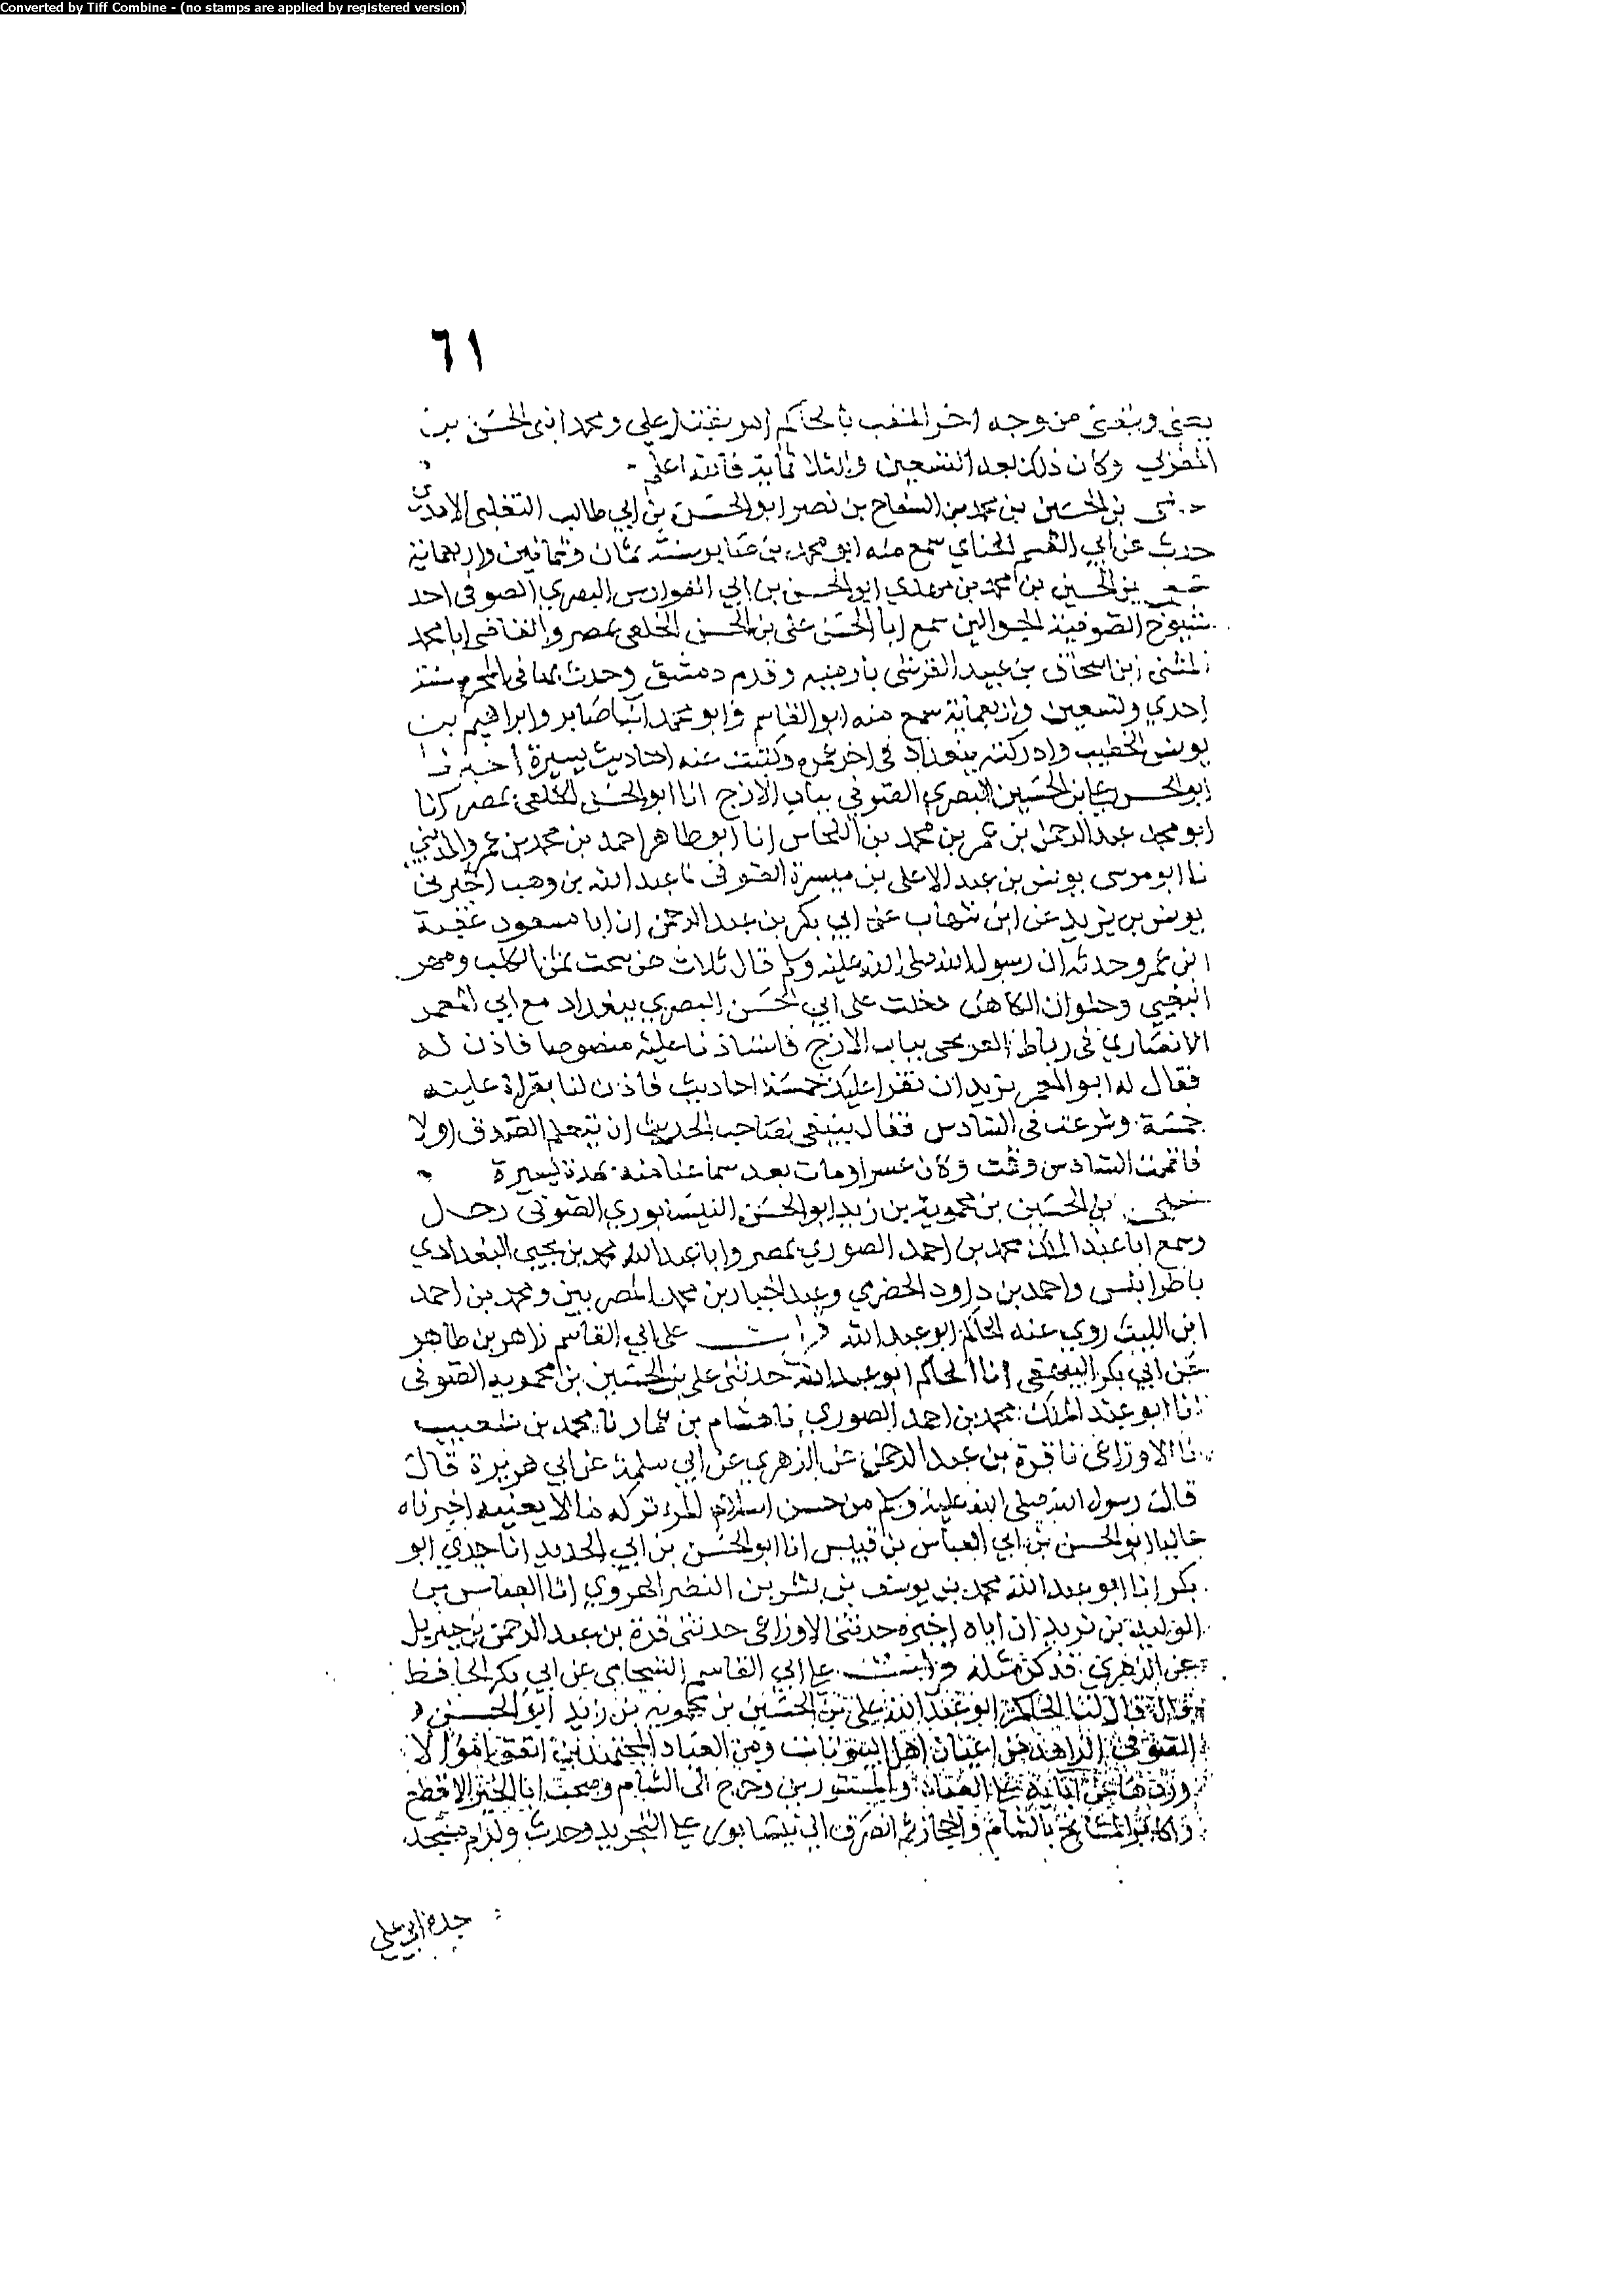 Converted by Tiff Combine - (no stamps are applied by registered version)
٦١
من وجه اخر الملقب بالحاكم علي ومحمد ابني الحسن بن
وكان ذلك بعد التسعين والثلاثمائة فالله اعلم
بن الحسين بن محمد بن السفاح بن نصر ابو الحسن بن ابي طالب التغلبي الامدي
حدث عن ابي القسم الحناي سمع منه ابو محمد بن صابر سنة ثمان وثمانين واربعماية
بن الحسين بن احمد بن مهدي ابو الحسن بن ابي الفوارس البصري الصوفي احد
شيوخ الصوفية الجوالين سمع ابا الحسن علي بن الحسن الخلعي بمصر والقاضي ابا محمد
المثنى ابن اسحاق بن عبيد القرشي وقدم دمشق وحدث بها في المحرم سنة
احدي وتسعين واربعماية سمع منه ابو القاسم وابو محمد ابنا صابر وابراهيم بن
يونس الخطيب وادركته ببغداد في اخر عمره وكتبت عنه احاديث يسيرة اخبرنا
ابو الحسن علي بن الحسين البصري الصوفي بباب الازج انا ابو الحسن الخلعي بمصر انا
ابو محمد عبد الرحمن بن عمر بن محمد بن النحاس انا ابو طاهر احمد بن محمد بن عمرو المديني
نا ابو موسى يونس بن عبد الاعلى بن ميسرة الصدفي نا عبد الله بن وهب اخبرني
يونس بن يزيد عن ابن شهاب عن ابي بكر بن عبد الرحمن ان ابا مسعود عقبة
ابن عمرو حدثه ان رسول الله صلى الله عليه وسلم قال ثلاث هن سحت ثمن الكلب ومهر
البغي وحلوان الكاهن دخلت على ابي الحسن البصري ببغداد مع ابي المعمر
الانصاري في رباط بباب الازج فاستاذنا عليه فاذن له
فقال له ابو المعمر نريد ان نقرا عليك خمسة احاديث فاذن لنا بقراءة عليه
خمسة وشرعت في السادس فقال ينبغي لصاحب الحديث ان يتعلم الصدق اولا
فاتممت السادس وقمت وكان عسرا ومات بعد سماعنا منه بمدة يسيرة
علي بن الحسين بن محمويه بن زيد ابو الحسن النيسابوري الصوفي رحل
وسمع ابا عبد الملك محمد بن احمد الصوري بمصر وابا عبد الله محمد بن يحيى البغدادي
باطرابلس واحمد بن داود الحضرمي وعبد الجبار بن محمد المصريين ومحمد بن احمد
ابن الليث روي عنه الحاكم ابو عبد الله قرات على ابي القاسم زاهر بن طاهر
عن ابي بكر البيهقي انا الحاكم ابو عبد الله حدثني علي بن الحسين بن محمويه الصوفي
انا ابو عبد الملك محمد بن احمد الصوري نا هشام بن عمار نا محمد بن شعيب
نا الاوزاعي نا قرة بن عبد الرحمن عن الزهري عن ابي سلمة عن ابي هريرة قال
قال رسول الله صلى الله عليه وسلم من حسن اسلام المرء تركه ما لا يعنيه اخبرناه
عاليا ابو الحسن بن ابي العباس بن قبيس انا ابو الحسن بن ابي الحديد انا جدي ابو
بكر انا ابو عبد الله محمد بن يوسف بن بشر بن النضر الهروي انا العباس بن
الوليد بن مزيد ان اباه اخبره حدثني الاوزاعي حدثني قرة بن عبد الرحمن بن جبريل
عن الزهري فذكر مثله قرات على ابي القاسم الشحامي عن ابي بكر الحافظ
قال قال لنا الحاكم ابو عبد الله علي بن الحسين بن محمويه بن زيد ابو الحسن
الصوفي الزاهد من اعيان اهل البيوتات ومن العباد المجتهدين انفق اموالا
ورثها عن ابائه على العباد والمستورين وخرج الى الشام وصحب ابا الخير الاقطع
واكابر المشايخ بالشام والحجاز ثم انصرف الى نيسابور على التجريد وحدث ولزم مسجد
جده ابي علي